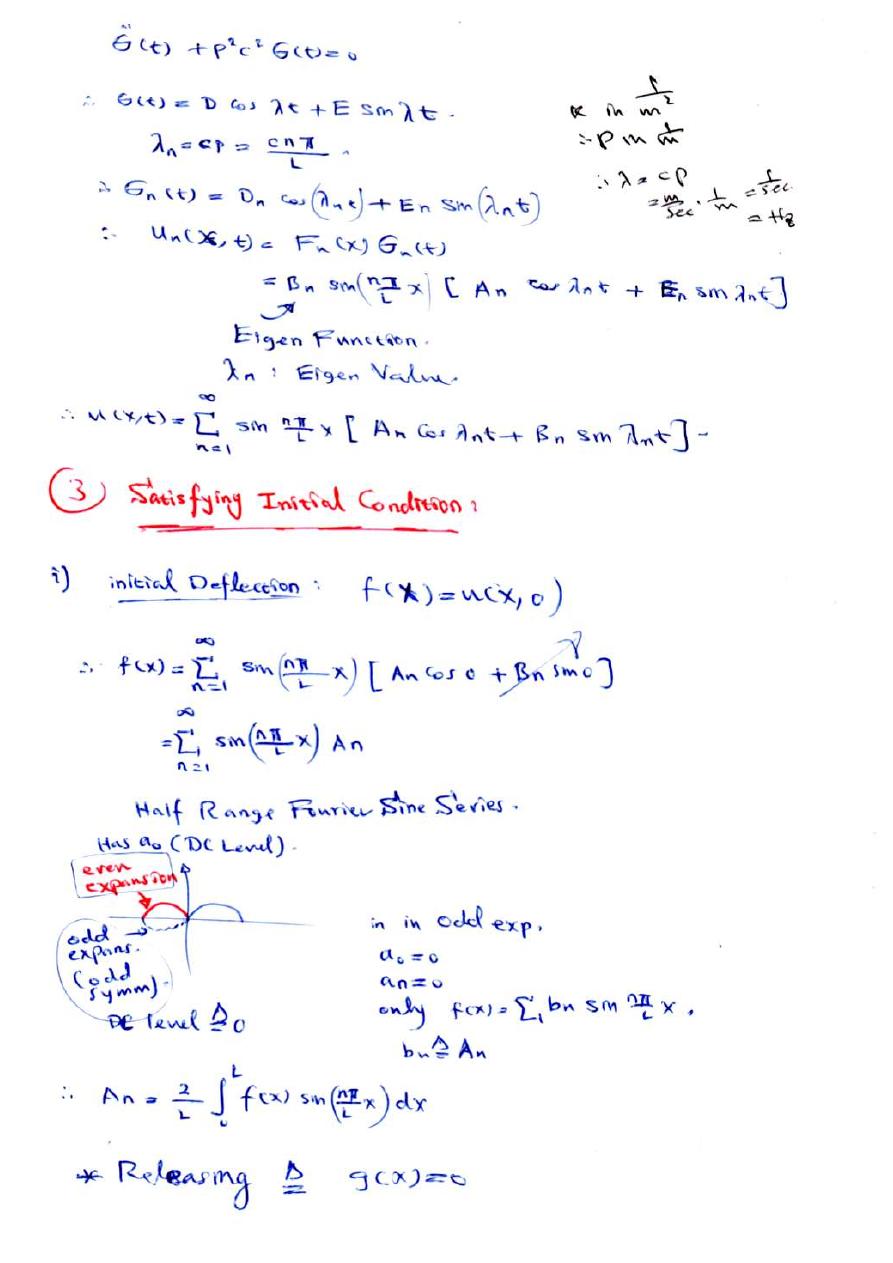 G̈(t) + p²c² G(t) = 0
∴ G(t) = D Cos λt + E sin λt.
λn = cp = cnπ/L.
K in 1/m²
∴ p in 1/m
∴ λ = cp
= m/sec · 1/m = 1/sec
= Hz
∴ Gn(t) = Dn cos(λnt) + En sin(λnt)
∴ Un(x, t) = Fn(x) Gn(t)
= Bn sin(nπ/L x) [ An cos λnt + En sin λnt]
Eigen Function.
λn : Eigen Value.
∴ u(x,t) = ∞Σn=1 sin nπ/L x [ An Cos λnt + Bn sin λnt] -
③ Satisfying Initial Condition :
i) initial Deflection : f(x) = u(x, 0)
∴ f(x) = ∞Σn=1 sin(nπ/L x) [ An Cos 0 + Bn sin 0]
= ∞Σn=1 sin(nπ/L x) An
Half Range Fourier Sine Series.
Has a₀ (DC Level).
even
expansion
odd
expans.
(odd
symm).
DC level ≜ 0
in in odd exp.
a₀ = 0
an = 0
only f(x) = Σ bn sin nπ/L x.
bn ≜ An
∴ An = 2/L ∫₀ᴸ f(x) sin(nπ/L x) dx
* Releasing ≜ g(x) = 0